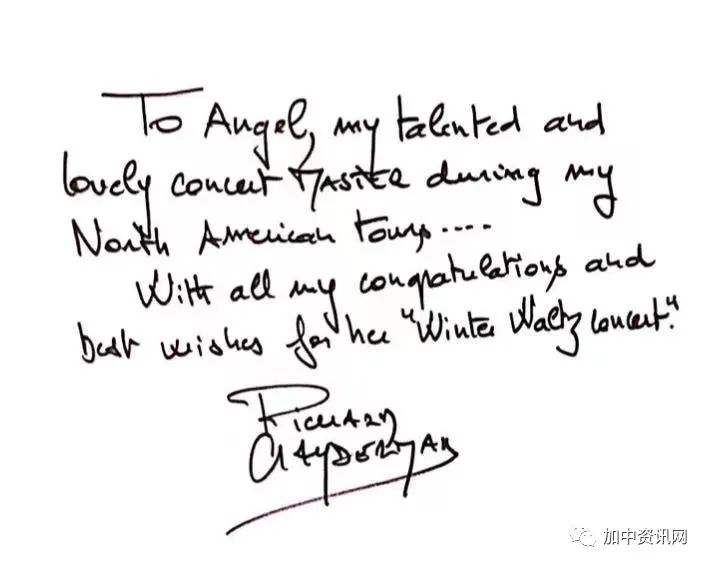 To Angel, my talented and
lovely concert MASTER during my
North American tours....
With all my congratulations and
best wishes for her "Winter Waltz concert."
RICHARD
CLAYDERMAN
加中资讯网